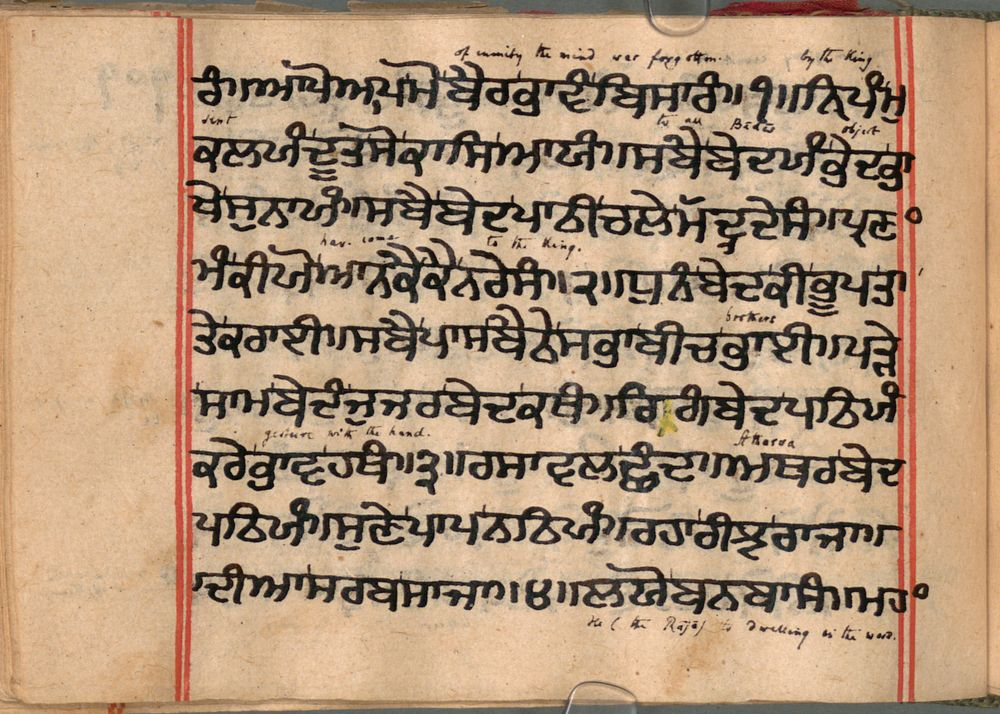 of enmity the mind was forgotten. by the King
ਰੰ॥ਆਪੋਅਪਮੋਬੈਰਭਾਵੰਬਿਸਾਰੰ॥੧॥ਨ੍ਰਿਪੰਮੁ
sent to all Bēdīs object
ਕਲਯੰਦੂਤੋਸੋਕਾਸਿਆਯੰ॥ਸਬੈਬੇਦਯੰਭੇਦਭਾ
ਖੇਸੁਨਾਯੰ॥ਸਬੈਬੇਦਪਾਠੀਚਲੇਮੱਦ੍ਰਦੇਸੰ॥ਪ੍ਰਣ
have come to the King.
ਮੰਕੀਯੋਆਨਕੈਕੈਨਰੇਸੰ॥੨॥ਧੁਨੰਬੇਦਕੀਭੂਪਤਾ
brothers
ਤੇਕਰਾਈ॥ਸਬੈਪਾਸਬੈਠੇਸਭਾਬੀਚਭਾਈ॥ਪੜ੍ਹੇ
ਸਾਮਬੇਦੰਜੁਜਰਬੇਦਕਥੰ॥ਰਿਗੰਬੇਦਪਠਿਯੰ
gesture with the hand. Atharva
ਕਰੇਭਾਵਹਥੰ॥੩॥ਰਸਾਵਲਛੰਦ॥ਅਥਰਬੇਦ
ਪਠਿਯੰ॥ਸੁਣੇਪਾਪਨਠਿਯੰ॥ਰਹਾਰੀਝਰਾਜਾ॥
ਦੀਆਸਰਬਸਾਜਾ॥੪॥ਲਯੋਬਨਬਾਸੰ॥ਮਹ
He (the Rājā) to dwelling in the wood.